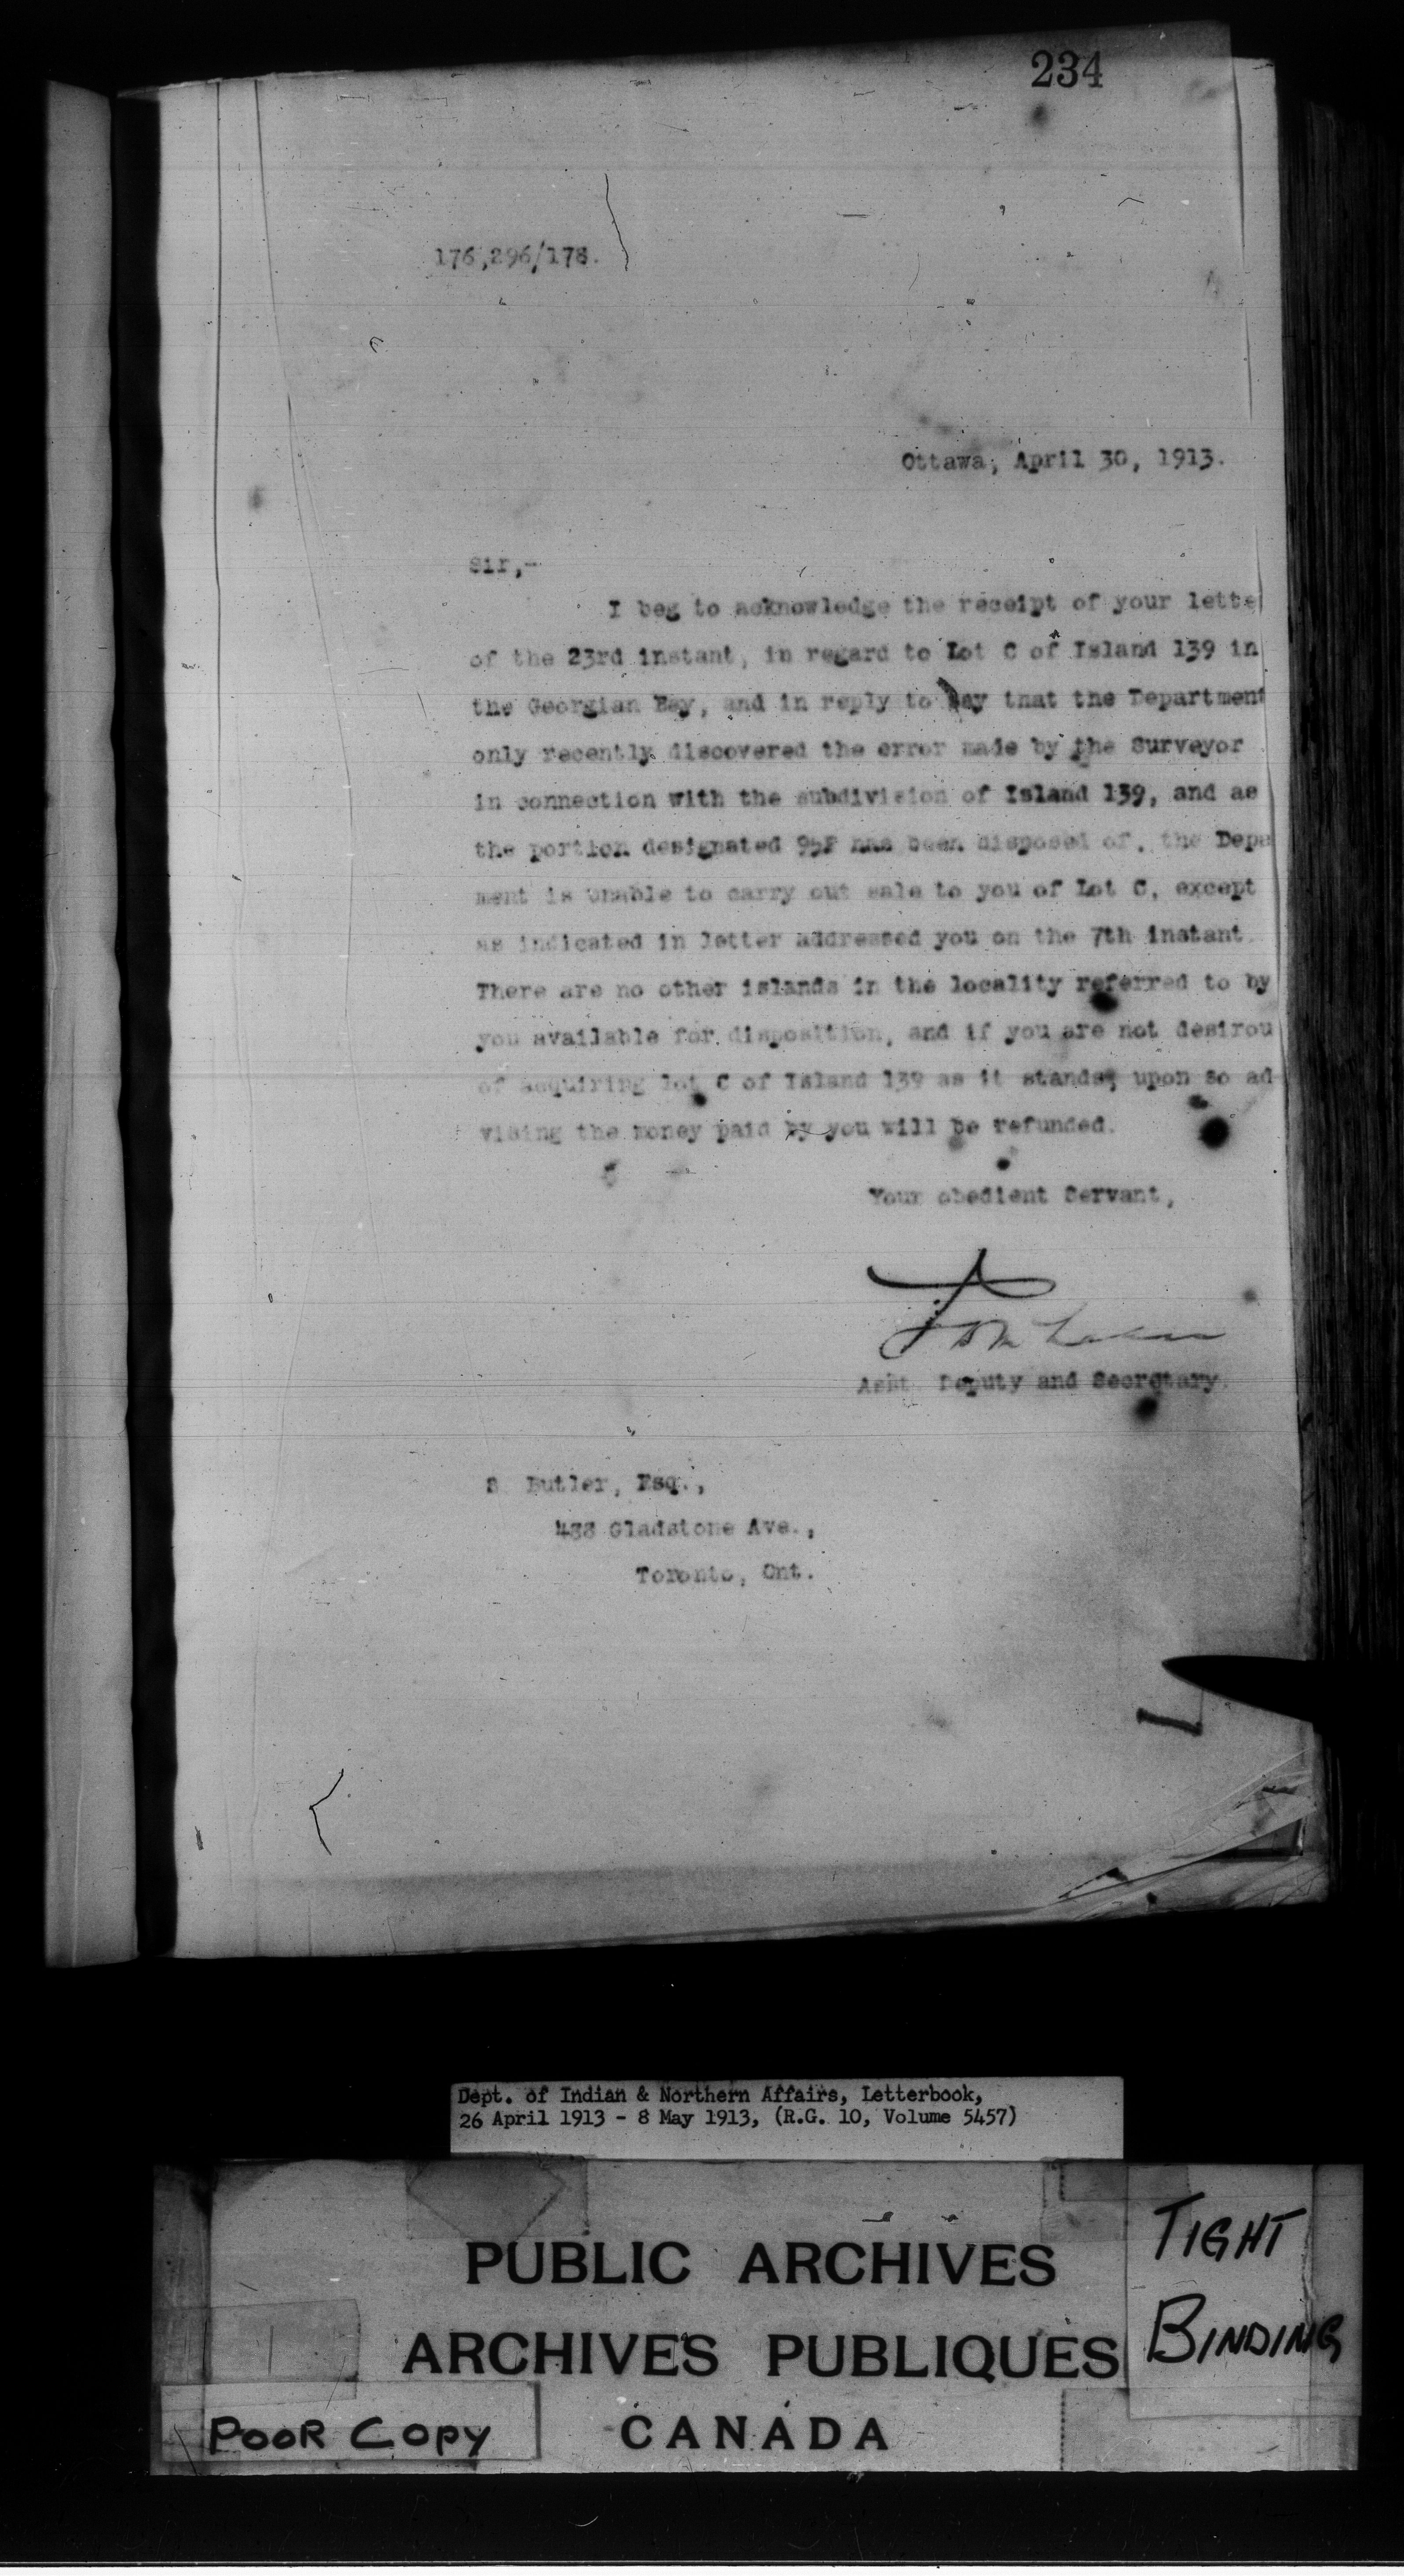 234
176,296/178.
Ottawa, April 30, 1913.
Sir,-
I beg to acknowledge the receipt of your lette
of the 23rd instant, in regard to Lot C of Island 139 in
the Georgian Bay, and in reply to say that the Department
only recently discovered the error made by the Surveyor
in connection with the subdivision of Island 139, and as
the portion designated 95F has been disposed of, the Depa
ment is unable to carry out sale to you of Lot C, except
as indicated in letter addressed you on the 7th instant.
There are no other islands in the locality referred to by
you available for disposition, and if you are not desirou
of acquiring lot C of Island 139 as it stands, upon so ad-
vising the money paid by you will be refunded.
Your obedient Servant,
Asst. Deputy and Secretary.
S. Butler, Esq.,
438 Gladstone Ave.,
Toronto, Ont.
Dept. of Indian & Northern Affairs, Letterbook,
26 April 1913 - 8 May 1913, (R.G. 10, Volume 5457)
PUBLIC ARCHIVES
ARCHIVES PUBLIQUES
CANADA
TIGHT
BINDING
POOR COPY